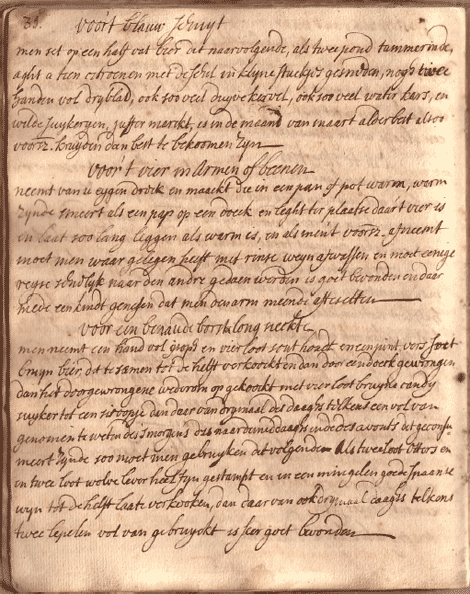 39.
voor't blauw schuyt
men set op een half vat bier dit naarvolgende, als twee pond tammerinde,
agt a tien citroenen met de schel in klyne stuckjes gesneden, nogh twee
handen vol dryblad, ook soo veel duyvekervel, ook soo veel water kars, en
wilde, is in de maand van maart alderbest alsoo
voorsz. kruyden dan best te bekoomen zyn
voor't vier in armen of beenen
neemt van u eygen drek en maackt die in een pan of pot warm, warm
zynde smeert als een pap op een doeck en leght ter plaatse daar't vier is
en laat soo lang leggen als warm is, en als men't voorsz. afneemt
moet men waar gelegen heeft met rinse weyn afwassen en moet eenige
reyse naar den andre gedaen werden is goet bevonden en daer
mede een kindt genesen dat men den arm meende afte setten
voor een benaude borst long
men neemt een hand vol en vier loot sout houdt en een pint vers soet
bruyn bier, dit te samen tot de helft verkookt en dan door een doeck gewrongen
dan het doorgewrongene wederom op gekookt met vier loot bruyne candy
suyker tot een siroopje dan daer van drymaal des daaghs telkens een vol van
genomen te weten des smorgens des naardemiddaaghs en de des avonts dit geconsu-
meert zynde soo moet men gebruyken dit volgende als twee loot
en twee loot wolve lever heel fyn gestampt en in een mingelen goede spaanse
wyn tot de helft laate verkooken, dan daar van ook drymaal daaghs telkens
twee lepelen vol van gebruyckt is seer goet bevonden